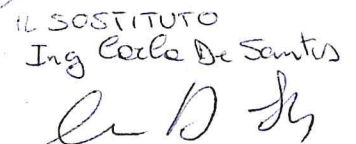 IL SOSTITUTO
Ing Carla De Santis